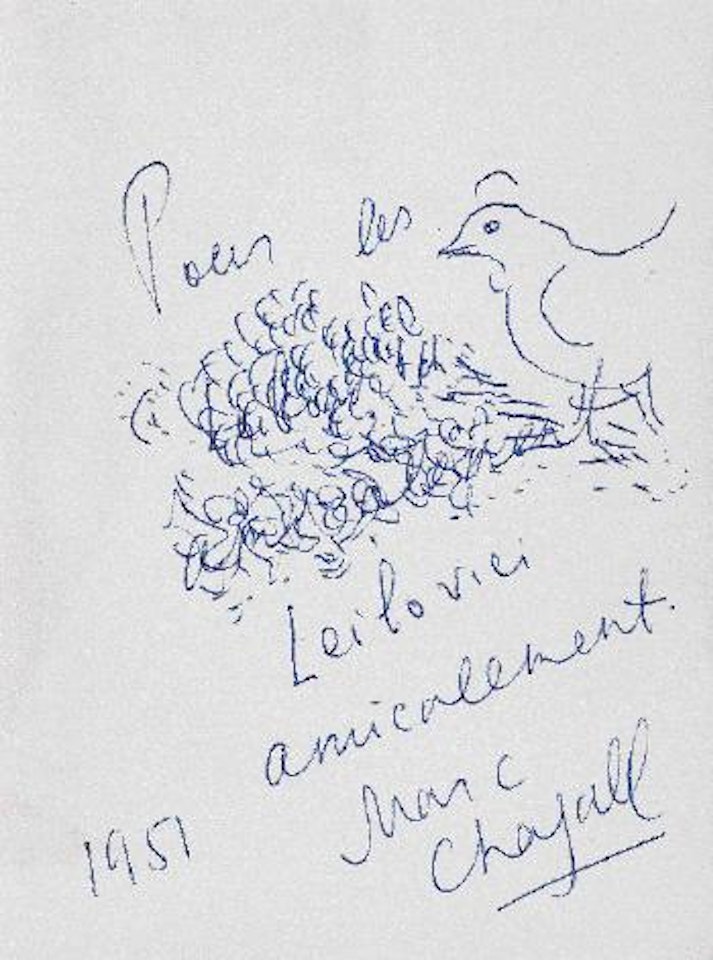 Pour les
Leibovici
amicalement.
Marc
Chagall
1951